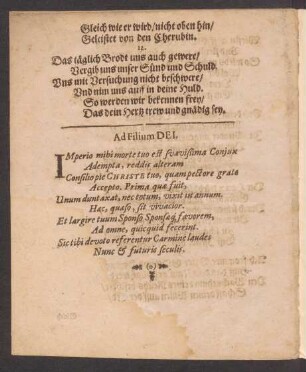 Gleich wie er wird/nicht oben hin/
Geleistet von den Cherubin.
12.
Das täglich Brodt uns auch gewere/
Vergib uns unser Sünd und Schuld.
Uns mit Versuchung nicht beschwere/
Und nim uns auff in deine Huld.
So werden wir bekennen frey/
Das dein Hertz trew und gnädig sey.
Ad Filium DEI.
IMperio mihi morte tuo est svavissima Conjux
Adempta, reddis alteram
Consilio pie CHRISTE tuo, quam pectore grato
Accepto. Prima quæ fuit,
Unum duntaxat, nec totum, vixit in annum.
Hæc, quæso, sit vivacior.
Et largire tuum Sponso Sponsæq; favorem,
Ad omne, quicquid fecerint.
Sic tibi devoto referentur Carmine laudes
Nunc & futuris seculis.